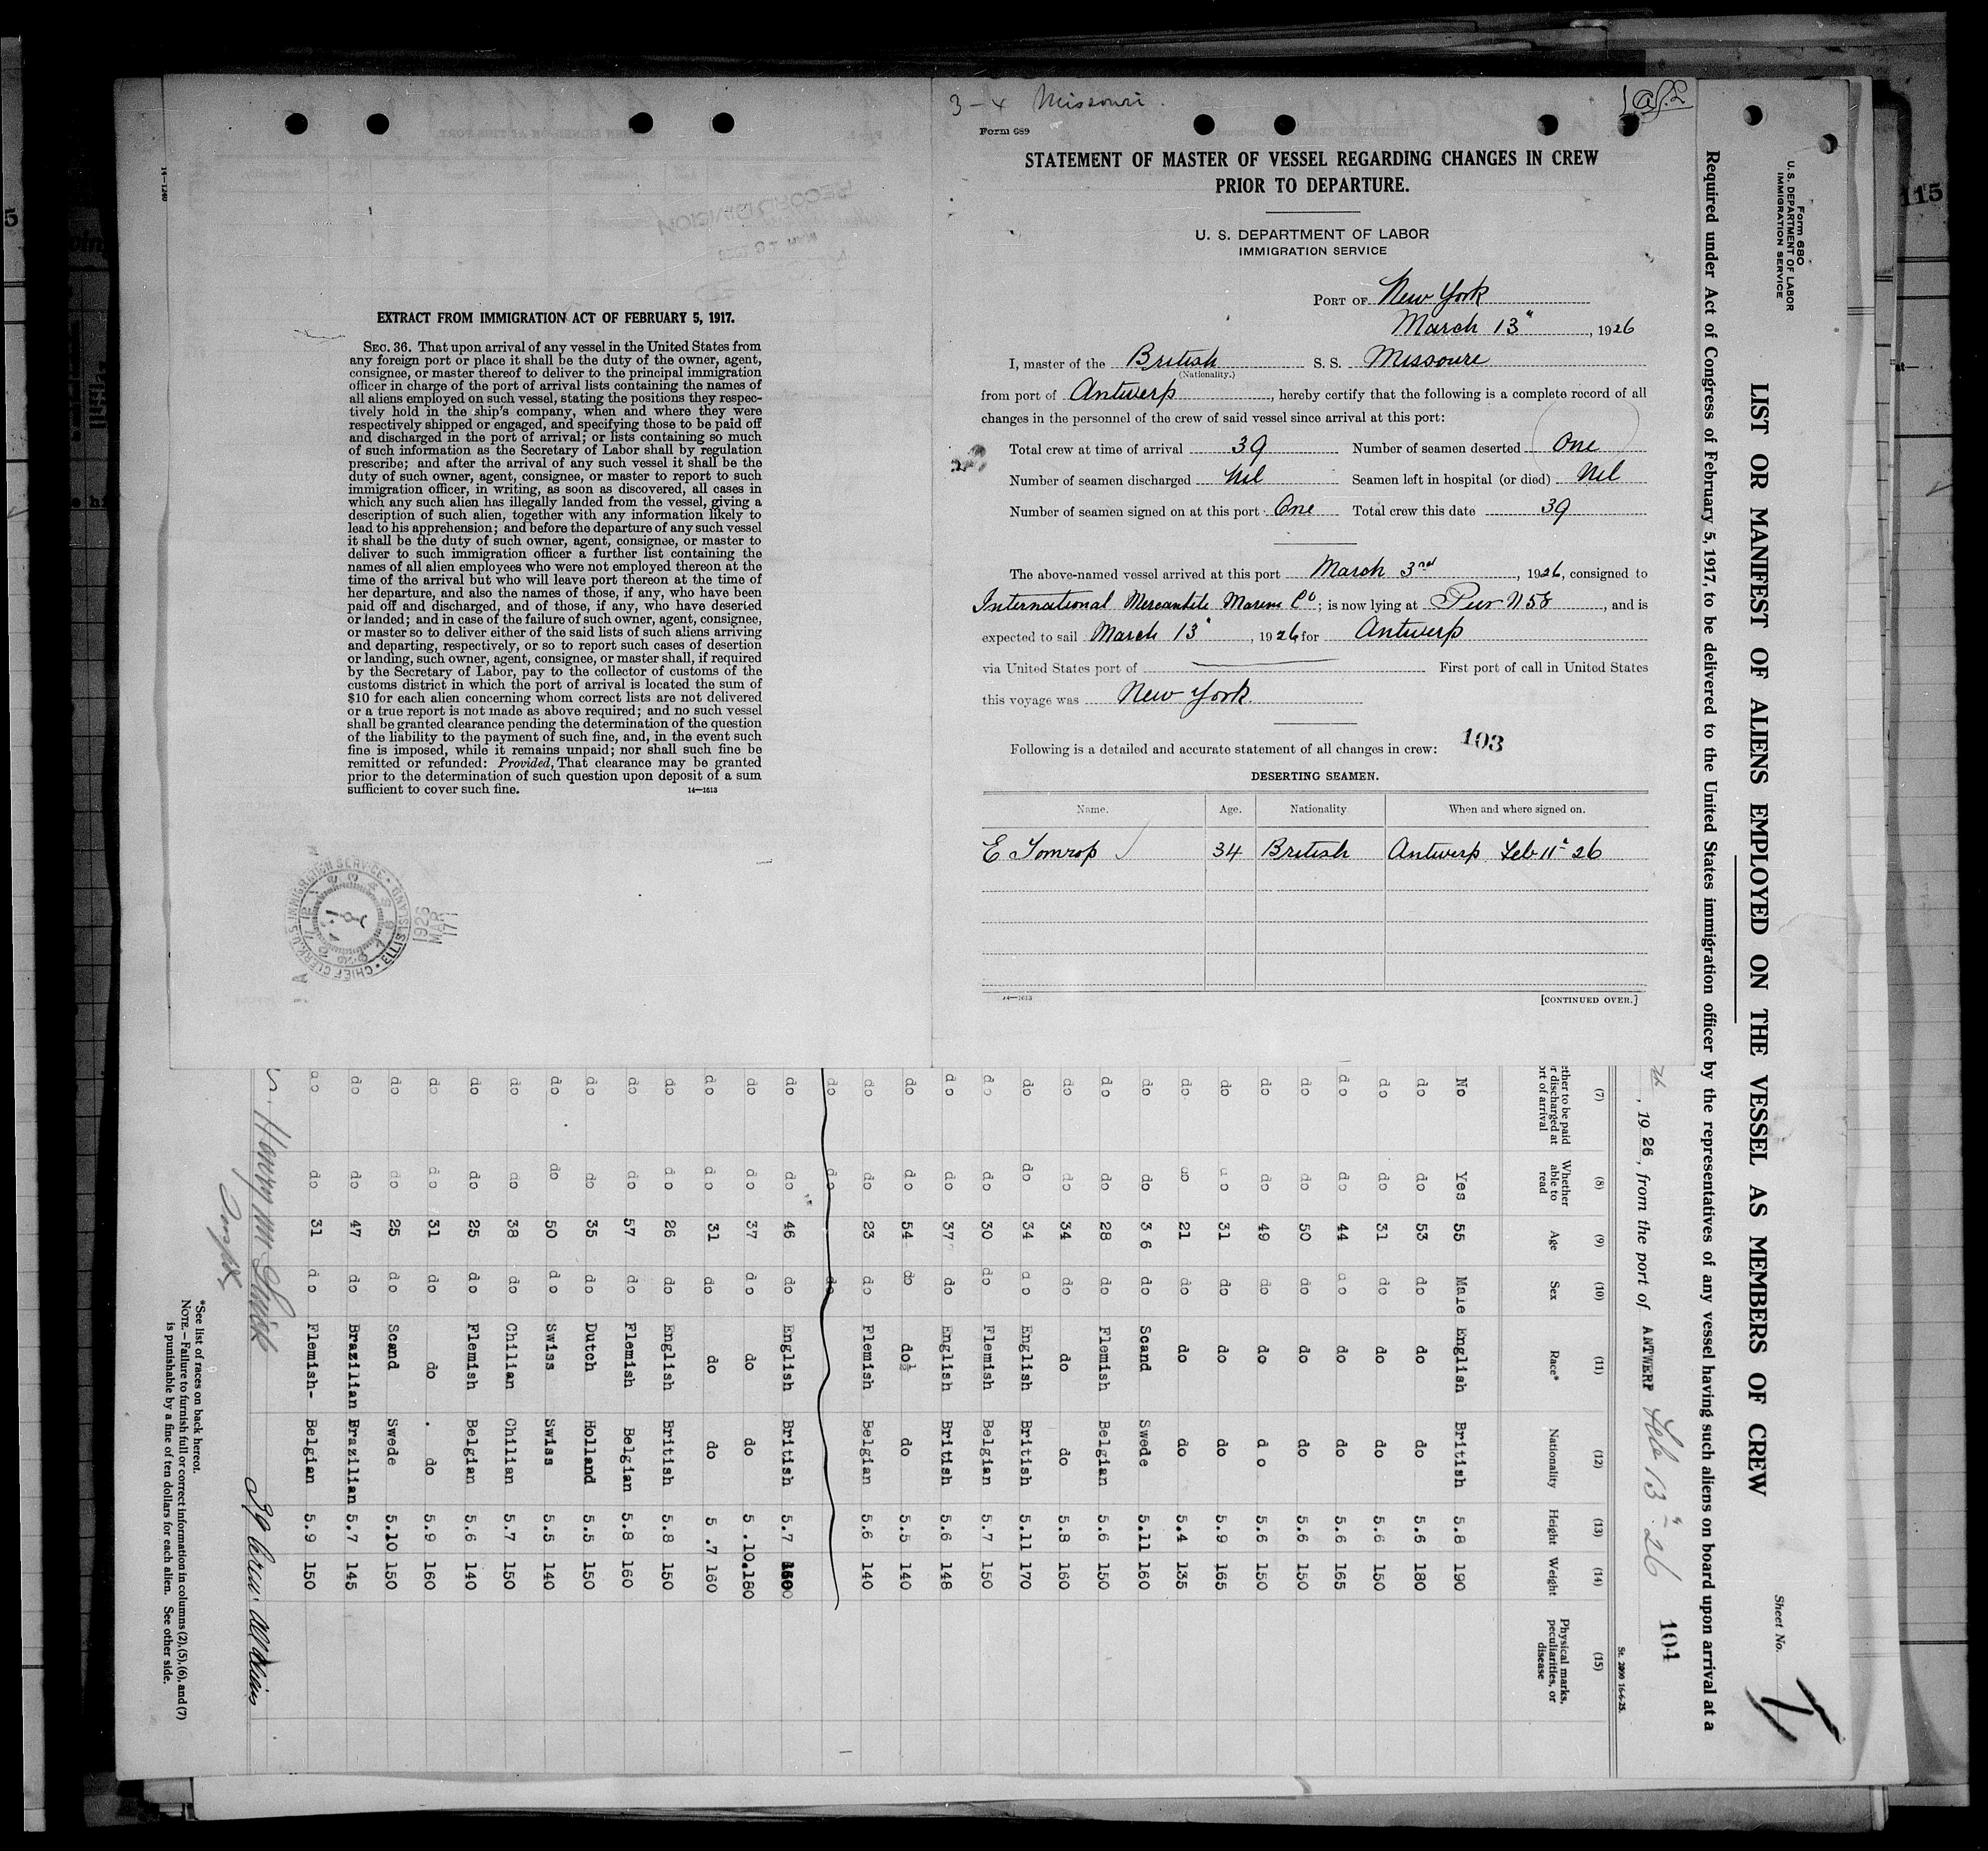 3-4 Missouri.
Form 689
STATEMENT OF MASTER OF VESSEL REGARDING CHANGES IN CREW
PRIOR TO DEPARTURE.
U. S. DEPARTMENT OF LABOR
IMMIGRATION SERVICE
PORT OF New York
March 13", 1926
I, master of the British S. S. Missouri
(Nationality.)
from port of Antwerp, hereby certify that the following is a complete record of all
changes in the personnel of the crew of said vessel since arrival at this port:
Total crew at time of arrival 39 Number of seamen deserted One
Number of seamen discharged Nil Seamen left in hospital (or died) Nil
Number of seamen signed on at this port One Total crew this date 39
The above-named vessel arrived at this port March 3rd, 1926, consigned to
International Mercantile Marine Co; is now lying at Pier N 58, and is
expected to sail March 13", 1926 for Antwerp
via United States port of First port of call in United States
this voyage was New York.
Following is a detailed and accurate statement of all changes in crew: 103
DESERTING SEAMEN.
Name. Age. Nationality When and where signed on.
E 34 British Antwerp Feb 11" 26
14—1613 [CONTINUED OVER.]
14—1240
EXTRACT FROM IMMIGRATION ACT OF FEBRUARY 5, 1917.
SEC. 36. That upon arrival of any vessel in the United States from
any foreign port or place it shall be the duty of the owner, agent,
consignee, or master thereof to deliver to the principal immigration
officer in charge of the port of arrival lists containing the names of
all aliens employed on such vessel, stating the positions they respec-
tively hold in the ship's company, when and where they were
respectively shipped or engaged, and specifying those to be paid off
and discharged in the port of arrival; or lists containing so much
of such information as the Secretary of Labor shall by regulation
prescribe; and after the arrival of any such vessel it shall be the
duty of such owner, agent, consignee, or master to report to such
immigration officer, in writing, as soon as discovered, all cases in
which any such alien has illegally landed from the vessel, giving a
description of such alien, together with any information likely to
lead to his apprehension; and before the departure of any such vessel
it shall be the duty of such owner, agent, consignee, or master to
deliver to such immigration officer a further list containing the
names of all alien employees who were not employed thereon at the
time of the arrival but who will leave port thereon at the time of
her departure, and also the names of those, if any, who have been
paid off and discharged, and of those, if any, who have deserted
or landed; and in case of the failure of such owner, agent, consignee,
or master so to deliver either of the said lists of such aliens arriving
and departing, respectively, or so to report such cases of desertion
or landing, such owner, agent, consignee, or master shall, if required
by the Secretary of Labor, pay to the collector of customs of the
customs district in which the port of arrival is located the sum of
$10 for each alien concerning whom correct lists are not delivered
or a true report is not made as above required; and no such vessel
shall be granted clearance pending the determination of the question
of the liability to the payment of such fine, and, in the event such
fine is imposed, while it remains unpaid; nor shall such fine be
remitted or refunded: Provided, That clearance may be granted
prior to the determination of such question upon deposit of a sum
sufficient to cover such fine. 14—1613
CHIEF CLERK, U.S. IMMIGRATION SERVICE • ELLIS ISLAND
1926
MAR
17
RECORD DIVISION
Form 680
U. S. DEPARTMENT OF LABOR
IMMIGRATION SERVICE
Sheet No.
LIST OR MANIFEST OF ALIENS EMPLOYED ON THE VESSEL AS MEMBERS OF CREW
Required under Act of Congress of February 5, 1917, to be delivered to the United States immigration officer by the representatives of any vessel having such aliens on board upon arrival at a
, 1926, from the port of ANTWERP Feb 13" 26 104
St. 2900 16-6-25.
(7) (8) (9) (10) (11) (12) (13) (14) (15)
ether to be paid Whether Age Sex Race* Nationality Height Weight Physical marks,
r discharged at able to peculiarities, or
ort of arrival read disease
No Yes 55 Male English British 5.8 190
do do 53 do do do 5.6 180
do do 31 do do do 5.6 150
do do 44 do do do 5.6 165
do do 50 do do do 5.6 150
do do 49 do do do 5.6 150
do do 31 do do do 5.9 165
do do 21 do do do 5.4 135
do do 36 do Scand Swede 5.11 160
do do 28 do Flemish Belgian 5.6 150
do do 34 do do do 5.8 160
do do 34 do English British 5.11 170
do do 30 do Flemish Belgian 5.7 150
do do 37 do English British 5.6 148
do do 54 do do½ do 5.5 140
do do 23 do Flemish Belgian 5.6 140
do do do
do do 46 do English British 5.7
do do 37 do do do 5.10.180
do do 31 do do do 5.7 160
do do 26 do English British 5.8 150
do do 57 do Flemish Belgian 5.8 160
do do 35 do Dutch Holland 5.5 150
do do 50 do Swiss Swiss 5.5 140
do do 38 do Chilian Chilian 5.7 150
do do 25 do Flemish Belgian 5.6 140
do do 31 do do do 5.9 160
do do 25 do Scand Swede 5.10 150
do do 47 do Brazilian Brazilian 5.7 145
do do 31 do Flemish- Belgian 5.9 150
39 Crew
*See list of races on back hereof.
NOTE.—Failure to furnish full or correct information in columns (2), (5), (6), and (7)
is punishable by a fine of ten dollars for each alien. See other side.
115
5